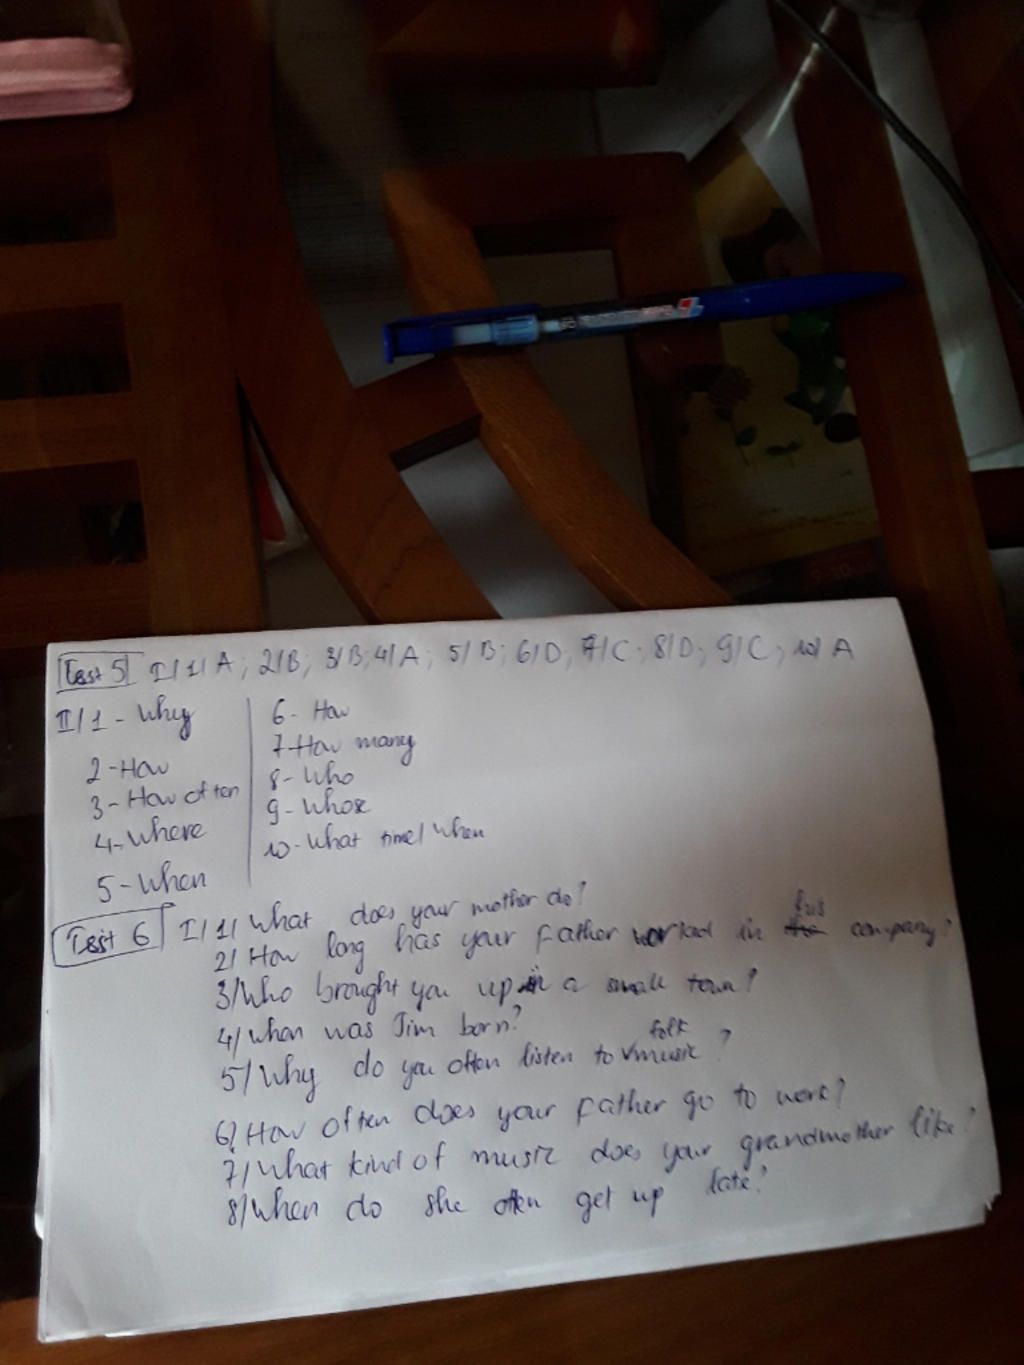 Test 5 I/ 1/ A; 2/ B; 3/ B; 4/ A; 5/ B; 6/ D; 7/ C; 8/ D; 9/ C; 10/ A
II/ 1 - Why
2 - How
3 - How often
4 - Where
5 - When
6 - How
7 - How many
8 - Who
9 - Whose
10 - What time/ When
Test 6 I/ 1/ What does your mother do?
2/ How long has your father worked in his company?
3/ Who brought you up in a small town?
4/ When was Jim born?
5/ Why do you often listen to folk music?
6/ How often does your father go to work?
7/ What kind of music does your grandmother like?
8/ When do she often get up late?